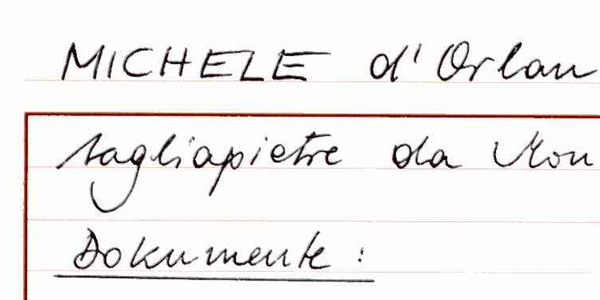 MICHELE d'Orlan
tagliapietre da
Dokumente :